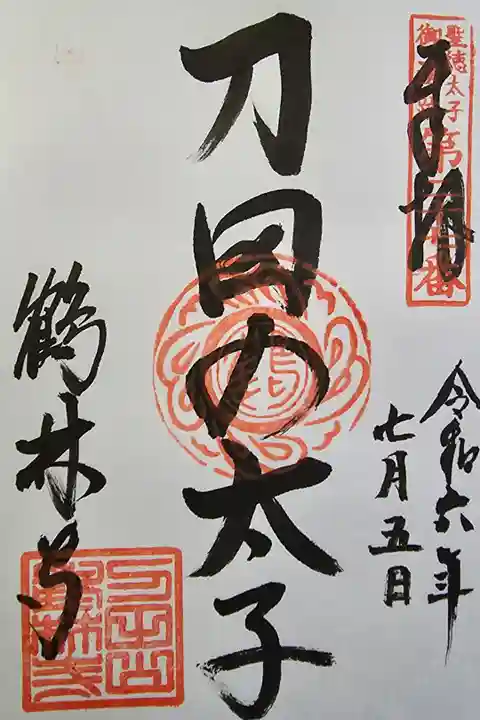 奉拝
聖徳太子
第二十七番
令和六年
七月五日
刀田の太子
鶴林寺